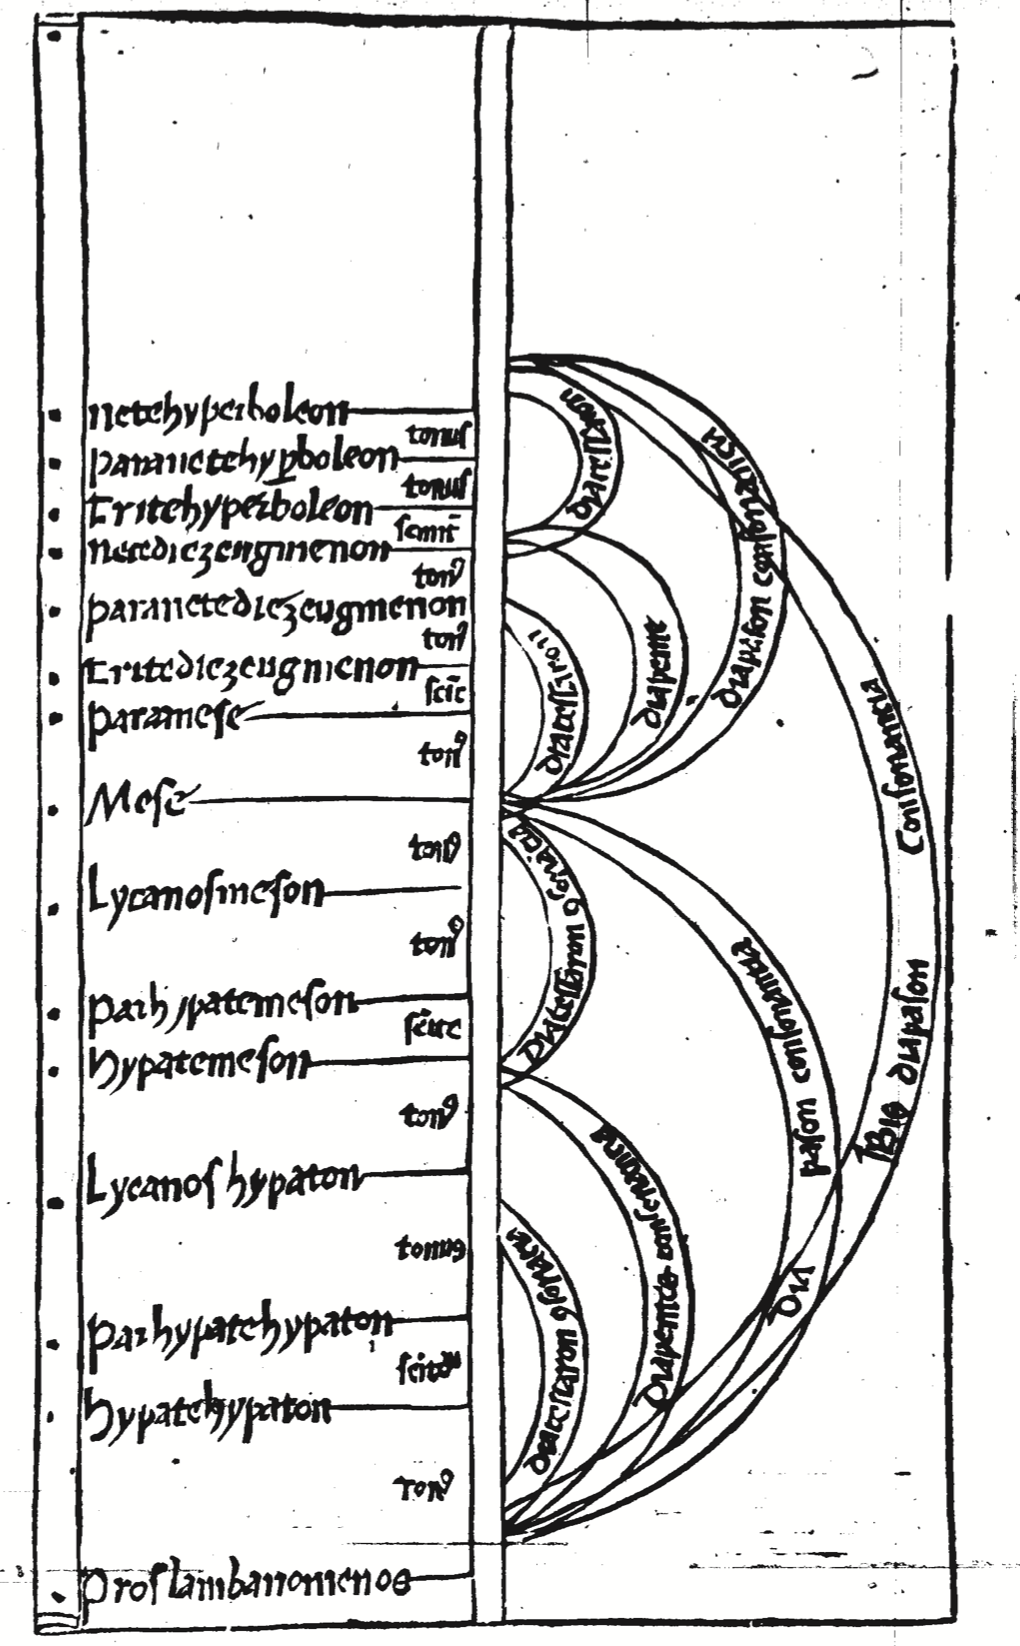 netehyperboleon
tonus
paranetehypboleon
tonus
tritehyperboleon
semit
netediezeugmenon
ton9
paranetediezeugmenon
ton9
tritediezeugmenon
paramese
ton9
Mese
ton9
Lycanosmeson
ton9
parhypatemeson
hypatemeson
ton9
Lycanos hypaton
tonus
parhypatehypaton
hypatehypaton
ton9
Proslambanomenos
diatessaron
diapason consonantia
diapente
diatessaron
Bis diapason Consonantia
Diatessaron 9sonacia
Dia pason consonantia
Diapente consonantia
diatessaron 9sonacia